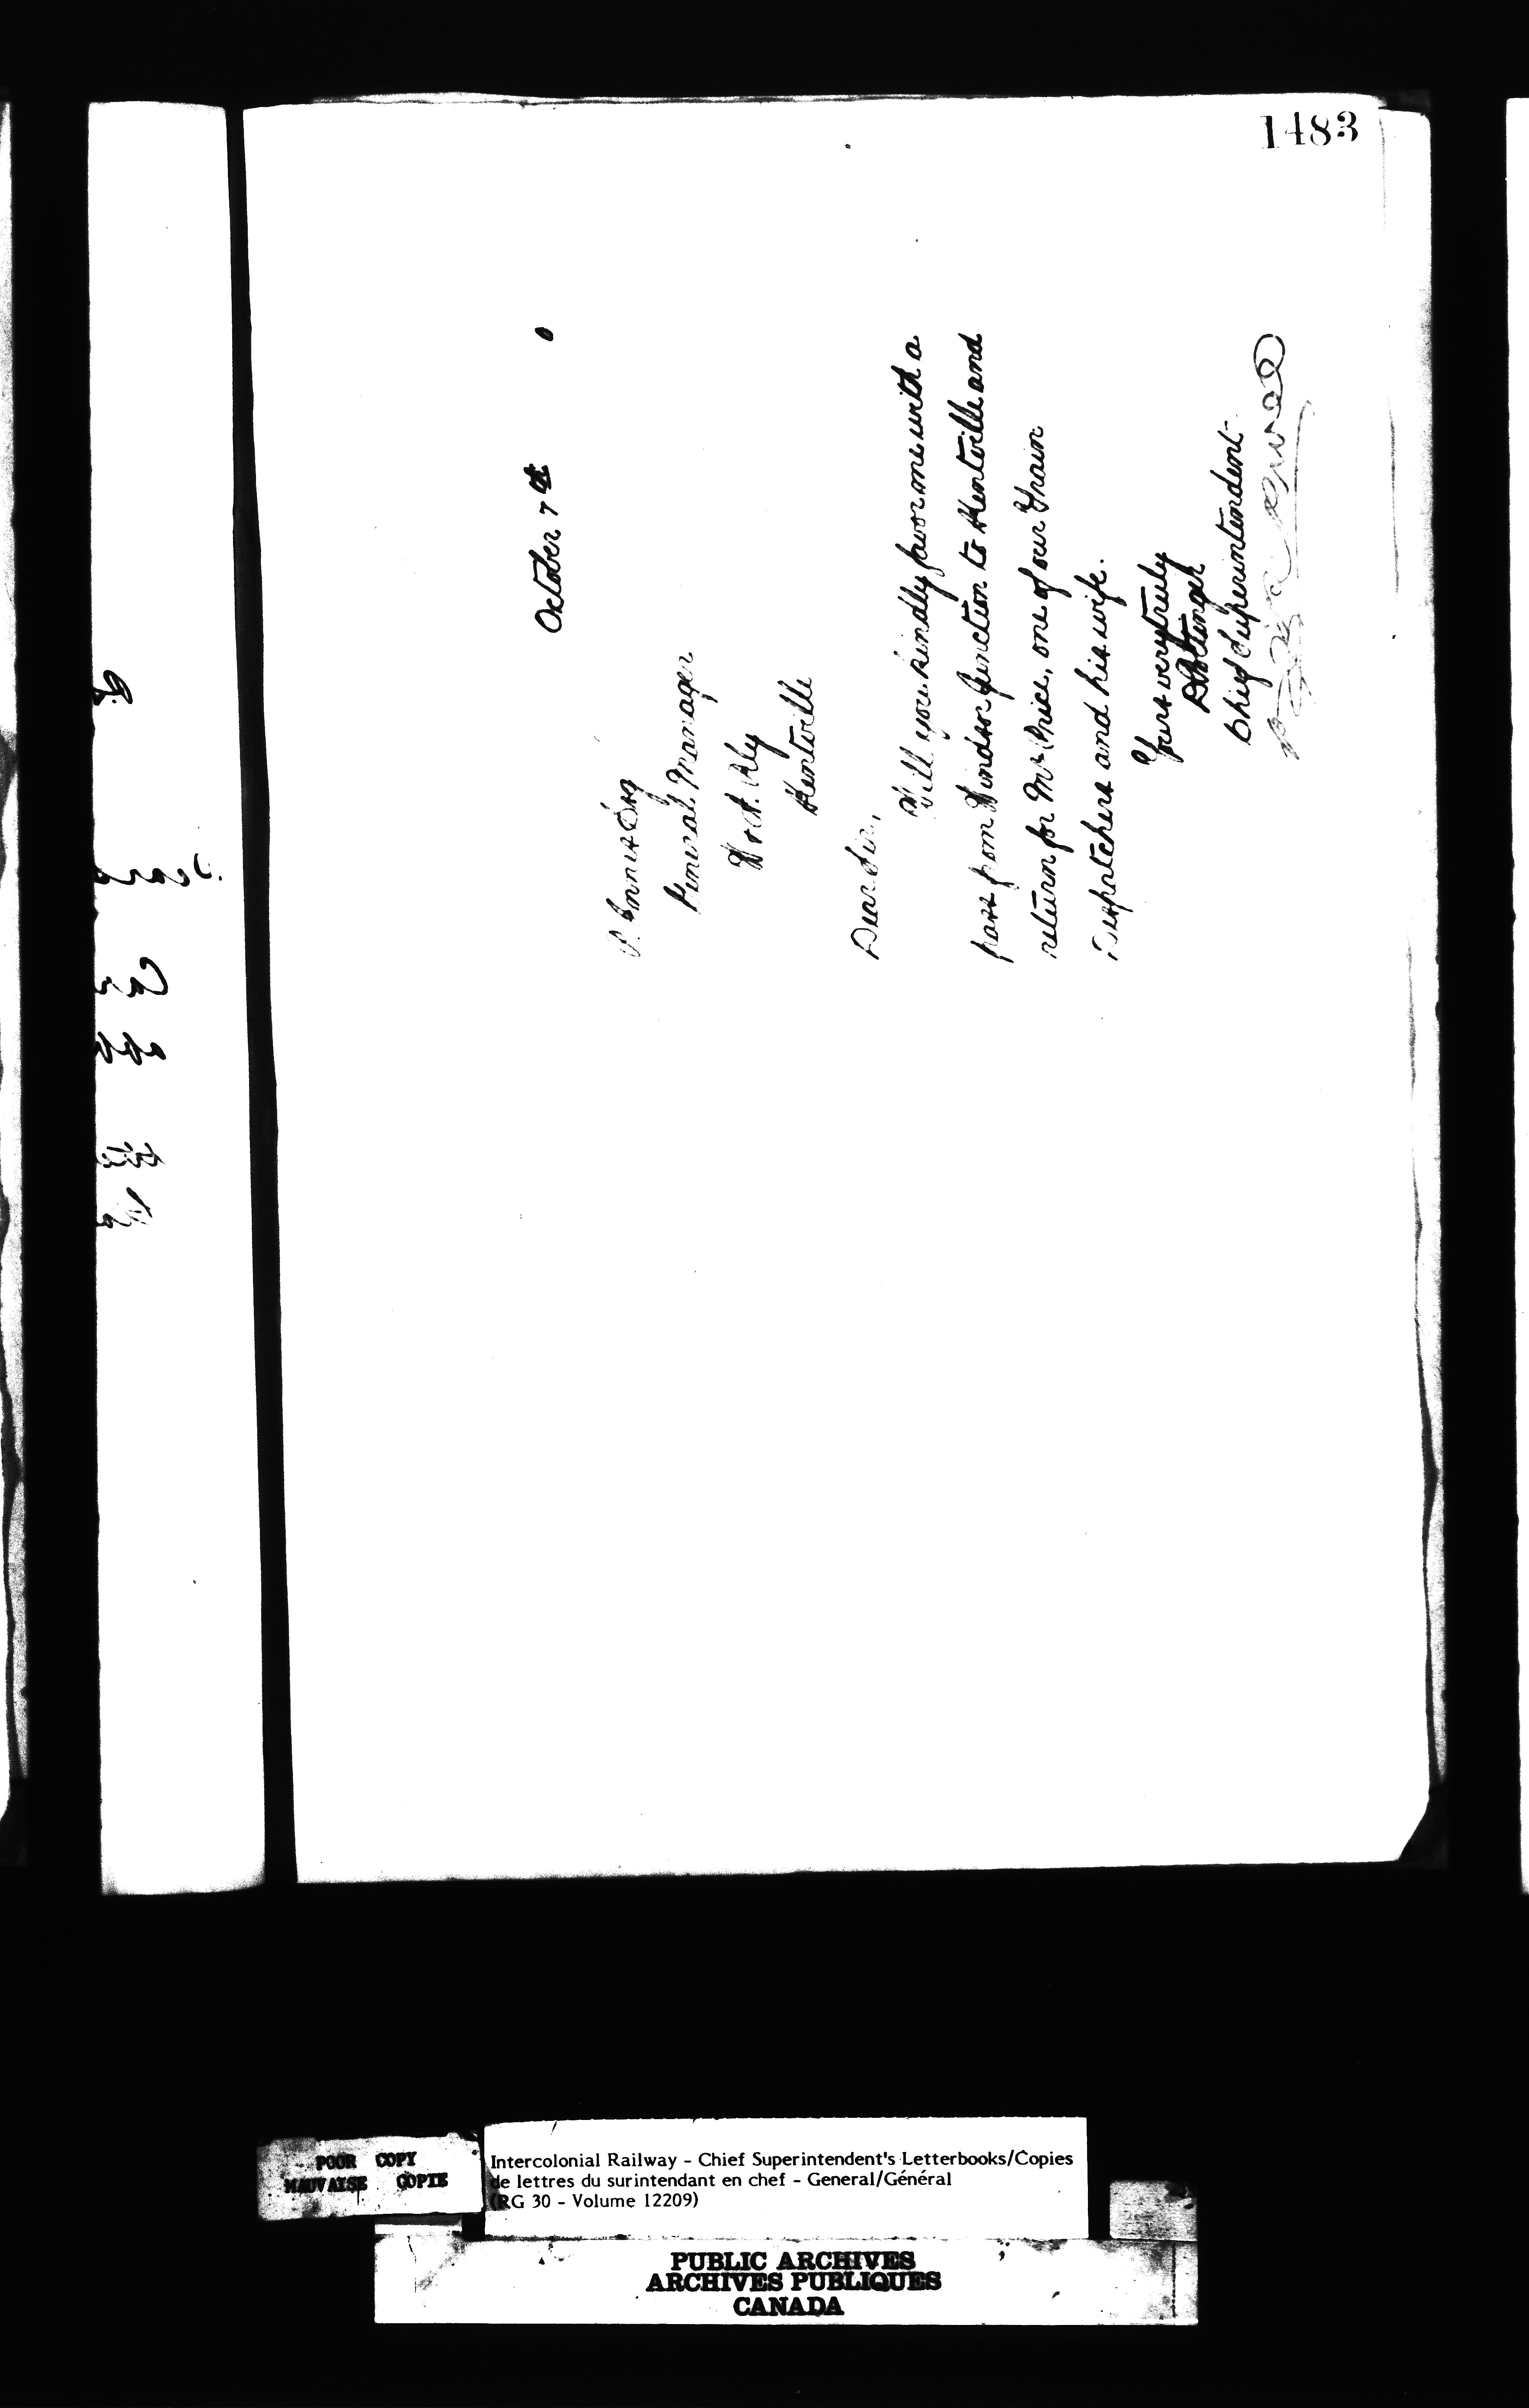 1483
October 7th 0
P. Innes Esq
General Manager
W & A. Rly
Kentville
Dear Sir,
Will you kindly favor me with a
pass from Windsor Junction to Kentville and
return for Mr Price, one of our Train
Despatchers and his wife.
Yours very truly
D Pottinger
Chief Superintendent
POOR COPY
MAUVAISE COPIE
Intercolonial Railway - Chief Superintendent's Letterbooks/Copies
de lettres du surintendant en chef - General/Général
(RG 30 - Volume 12209)
PUBLIC ARCHIVES
ARCHIVES PUBLIQUES
CANADA